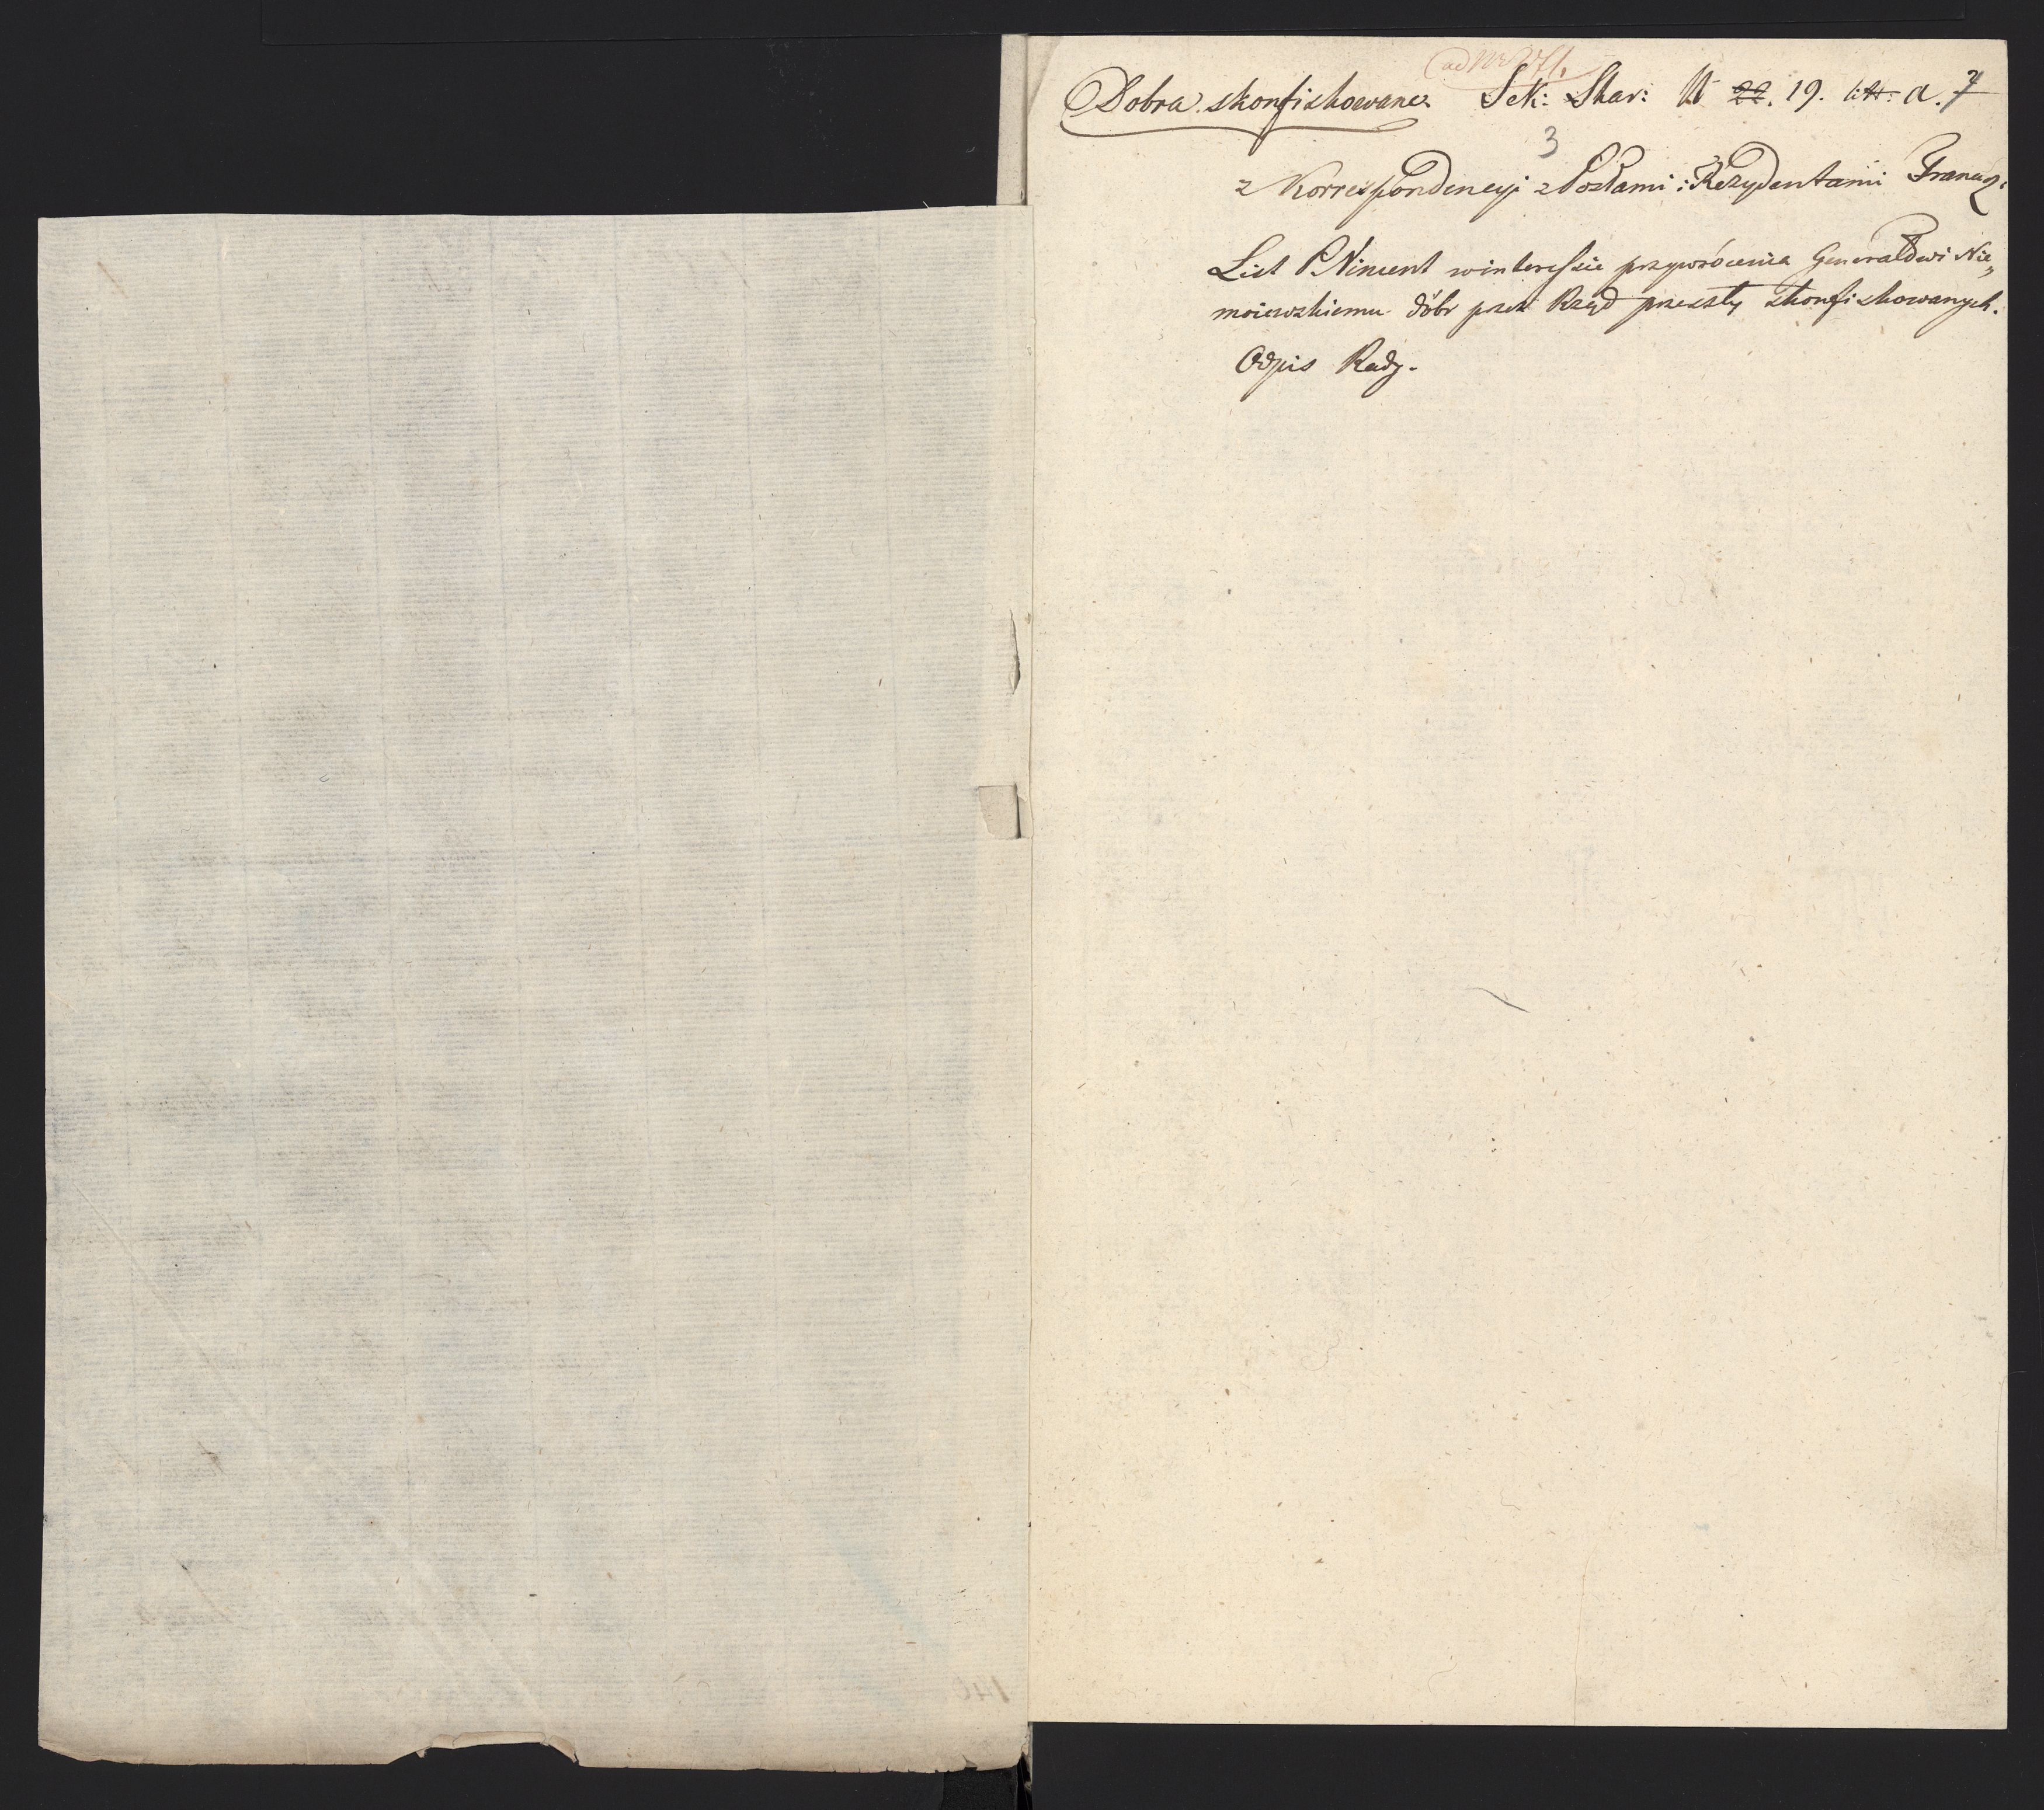 Dobra skonfiskowane Sek: Skar: N 22. 19. litt: a. 7
3
z Korrespondencyi z Posłami i Rezydentami Francuz:
List P. Vincent w interessie przywrócenia Generałowi Nie„
moiewskiemu dóbr przez Rząd przeszły skonfiskowanych.
Odpis Rady.